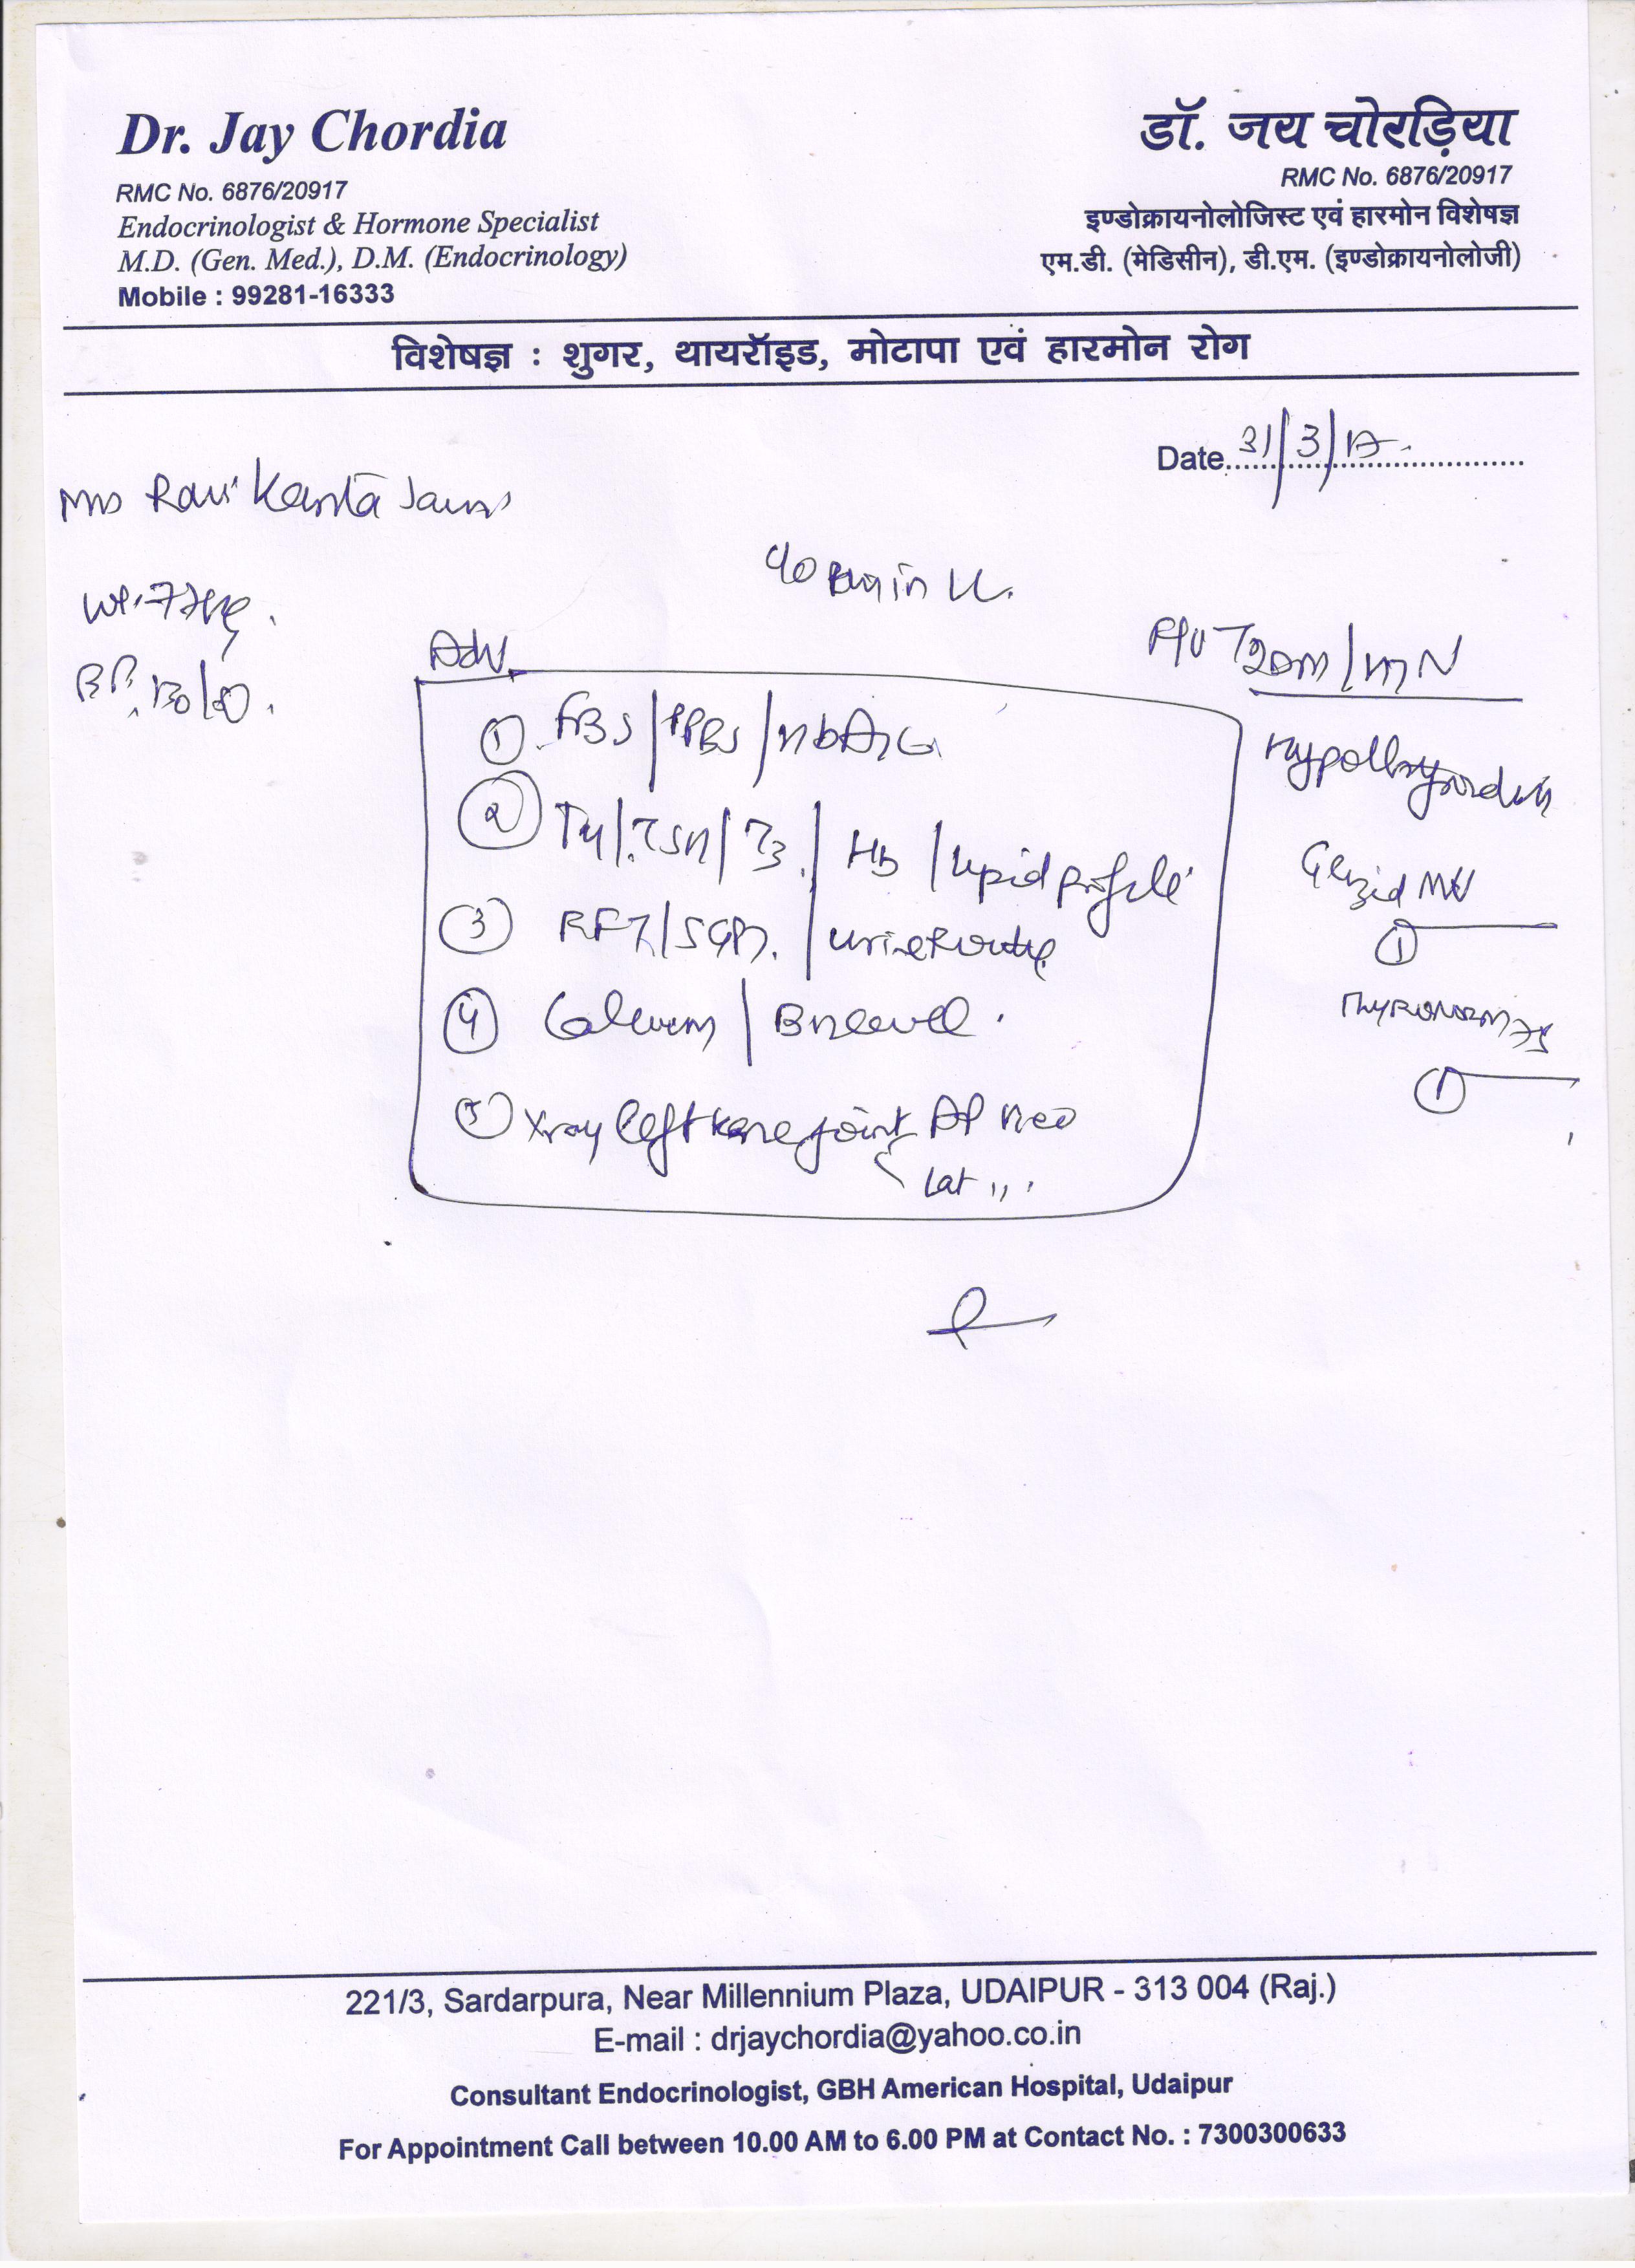 Dr. Jay Chordia
RMC No. 6876/20917
Endocrinologist & Hormone Specialist
M.D. (Gen. Med.), D.M. (Endocrinology)
Mobile : 99281-16333
डॉ. जय चोरड़िया
RMC No. 6876/20917
इण्डोक्रायनोलोजिस्ट एवं हारमोन विशेषज्ञ
एम.डी. (मेडिसीन), डी.एम. (इण्डोक्रायनोलोजी)
विशेषज्ञ : शुगर, थायरॉइड, मोटापा एवं हारमोन रोग
Date 31/3/17
Mrs Ravi Kanta Jain
c/o in LL.
Wt. 77kg.
BP. 130/80.
T2DM/HTN
Hypothyroidism
MR
①
Thyronorm 75
①
Adv.
① FBS/PPBS/HbA1c
② T4/TSH/T3/Hb/lipid profile
③ RFT/SGPT/urine Routine
④ Calcium/
⑤ Xray left knee joint AP
Lat ,,
221/3, Sardarpura, Near Millennium Plaza, UDAIPUR - 313 004 (Raj.)
E-mail : drjaychordia@yahoo.co.in
Consultant Endocrinologist, GBH American Hospital, Udaipur
For Appointment Call between 10.00 AM to 6.00 PM at Contact No. : 7300300633